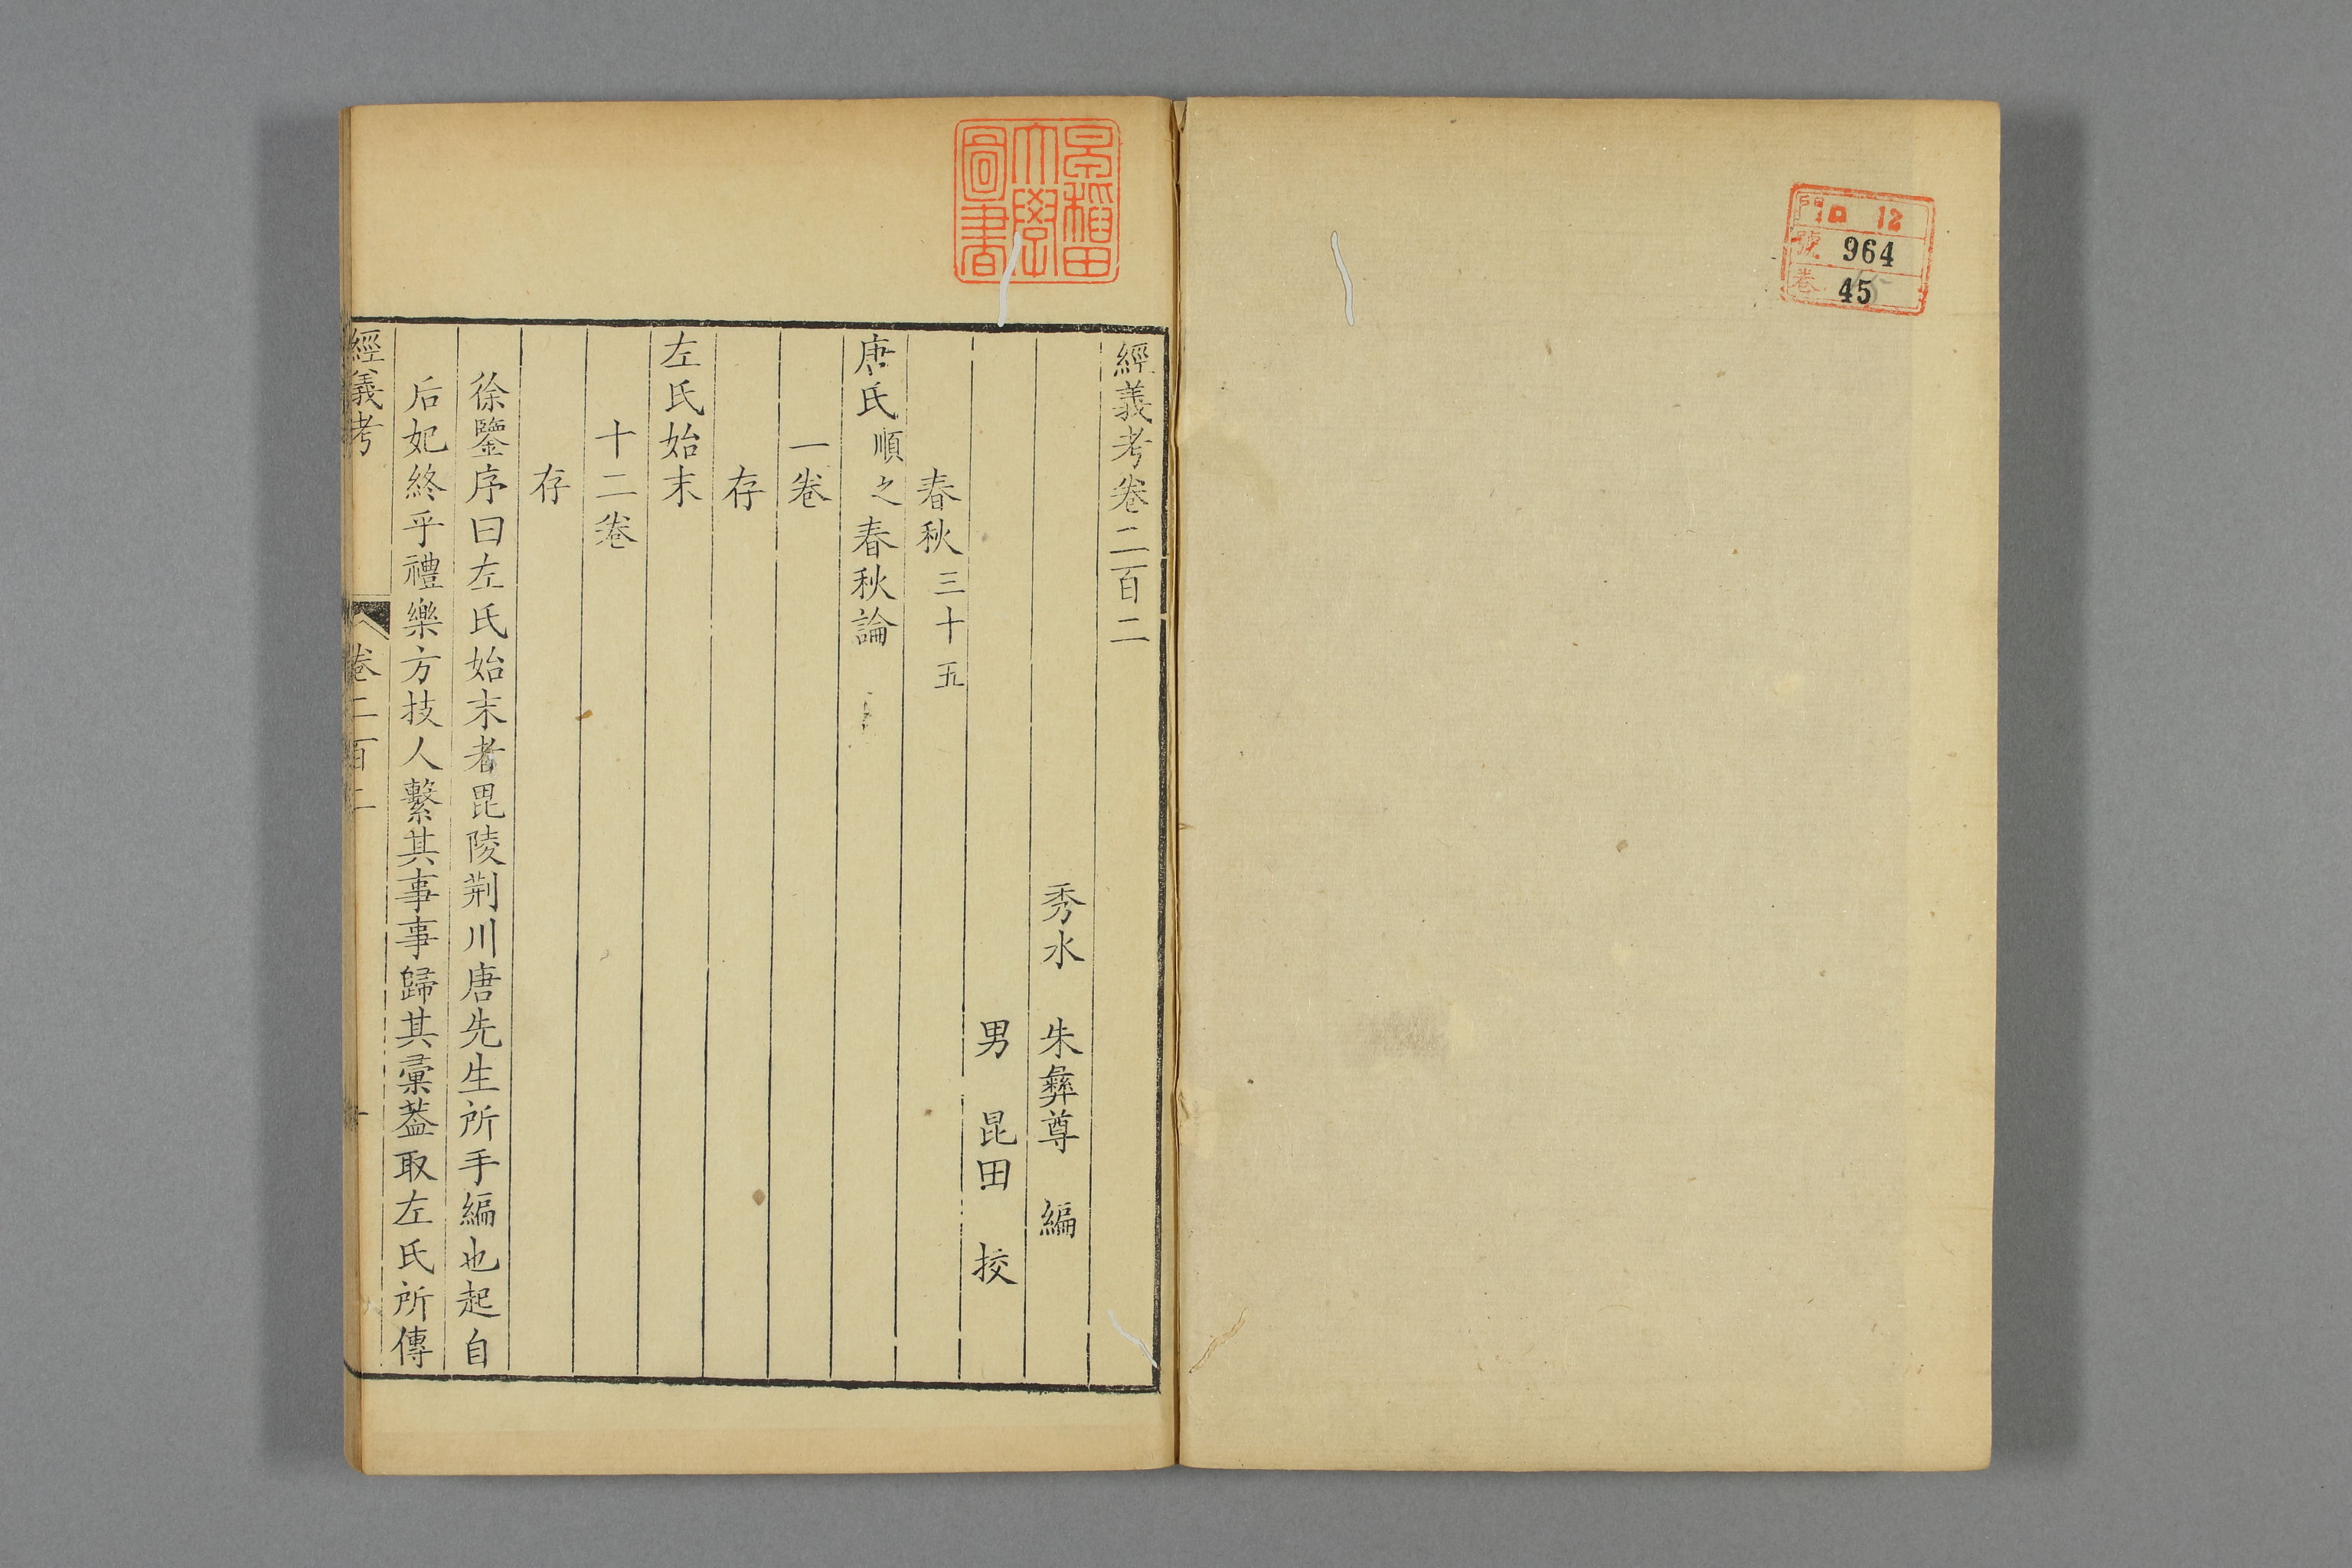 門 ロ 12
號 964
巻 45
早稲田
大學
圖書
經義考卷二百二
秀水 朱彝尊 編
男 昆田 挍
春秋三十五
唐氏順之春秋論
一卷
存
左氏始末
十二卷
存
徐鑒序曰左氏始末者毘陵荆川唐先生所手編也起自
后妃終乎禮樂方技人繫其事事歸其彙葢取左氏所傳
經義考 卷二百二 一